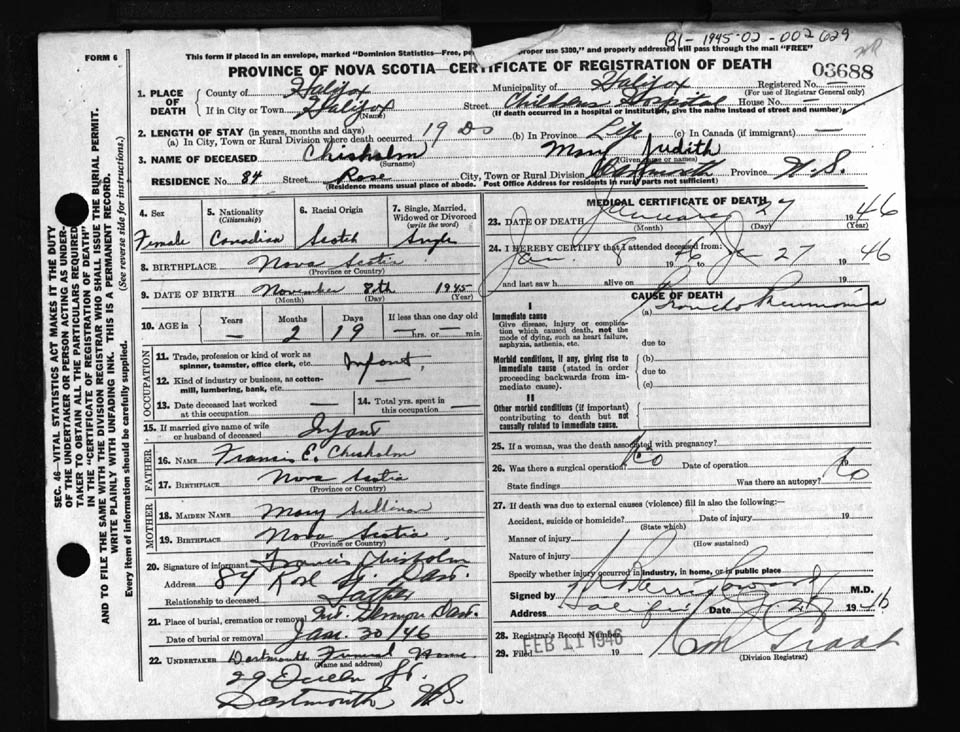 B1- 1945-02-002629
FORM 6
This form if placed in an envelope, marked "Dominion Statistics—Free, pe proper use $300," and properly addressed will pass through the mail "FREE"
PROVINCE OF NOVA SCOTIA—CERTIFICATE OF REGISTRATION OF DEATH
03688
1. PLACE OF DEATH
County of Halifax
Municipality of Halifax
Registered No. —
(For use of Registrar General only)
If in City or Town Halifax
(Name)
Street Childrens Hospital House No. —
(If death occurred in a hospital or institution, give the name instead of street and number)
2. LENGTH OF STAY (in years, months and days)
(a) In City, Town or Rural Division where death occurred 19 Ds (b) In Province Life (c) In Canada (if immigrant) —
3. NAME OF DECEASED Chisholm Mary Judith
(Surname) (Given name or names)
RESIDENCE No. 84 Street Rose City, Town or Rural Division Dartmouth Province N.S.
(Residence means usual place of abode. Post Office Address for residents in rural parts not sufficient)
SEC. 46—VITAL STATISTICS ACT MAKES IT THE DUTY
OF THE UNDERTAKER OR PERSON ACTING AS UNDER-
TAKER TO OBTAIN ALL THE PARTICULARS REQUIRED
IN THE "CERTIFICATE OF REGISTRATION OF DEATH"
AND TO FILE THE SAME WITH THE DIVISION REGISTRAR WHO SHALL ISSUE THE BURIAL PERMIT.
WRITE PLAINLY WITH UNFADING INK. THIS IS A PERMANENT RECORD.
Every Item of Information should be carefully supplied. (See reverse side for instructions.)
4. Sex
Female
5. Nationality
(Citizenship)
Canadian
6. Racial Origin
Scotch
7. Single, Married,
Widowed or Divorced
(write the word)
Single
8. BIRTHPLACE Nova Scotia
(Province or Country)
9. DATE OF BIRTH November 8th 1945
(Month) (Day) (Year)
10. AGE in
Years Months Days If less than one day old
— 2 19 —hrs. or —min.
OCCUPATION
11. Trade, profession or kind of work as
spinner, teamster, office clerk, etc. Infant,
12. Kind of industry or business, as cotton-
mill, lumbering, bank, etc. —
13. Date deceased last worked
at this occupation —
14. Total yrs. spent in
this occupation —
15. If married give name of wife
or husband of deceased Infant
FATHER
16. NAME Francis E. Chisholm
17. BIRTHPLACE Nova Scotia
MOTHER
18. MAIDEN NAME Mary Sullivan
19. BIRTHPLACE Nova Scotia
(Province or Country)
20. Signature of informant Francis Chisholm
Address 84 Rose St. Dart.
Relationship to deceased Father
21. Place of burial, cremation or removal Mt. Hermon Dart.
Date of burial or removal Jan. 30/46
22. UNDERTAKER Dartmouth Funeral Home
(Name and address)
29 Queen St.
Dartmouth N.S.
MEDICAL CERTIFICATE OF DEATH
23. DATE OF DEATH January 27 1946
(Month) (Day) (Year)
24. I HEREBY CERTIFY that I attended deceased from:
Jan. 8 1946 Ja 27 1946
and last saw h alive on 19
CAUSE OF DEATH
I
Immediate cause
Give disease, injury or complica-
tion which caused death, not the
mode of dying, such as heart failure,
asphyxia, asthenia, etc.
(a) Broncho Pneumonia
due to
Morbid conditions, if any, giving rise to
immediate cause (stated in order
proceeding backwards from im-
mediate cause).
(b)
due to
(c)
II
Other morbid conditions (if important)
contributing to death but not
causally related to immediate cause.
25. If a woman, was the death associated with pregnancy?
26. Was there a surgical operation? No Date of operation
State findings Was there an autopsy? No
27. If death was due to external causes (violence) fill in also the following:—
Accident, suicide or homicide? Date of injury 19
(State which)
Manner of injury
(How sustained)
Nature of injury
Specify whether injury occurred in industry, in home, or in public place
Signed by M.D.
Address Halifax Date Ja 27 1946
28. Registrar's Record Number
29. Filed FEB 11 1946 19
(Division Registrar)